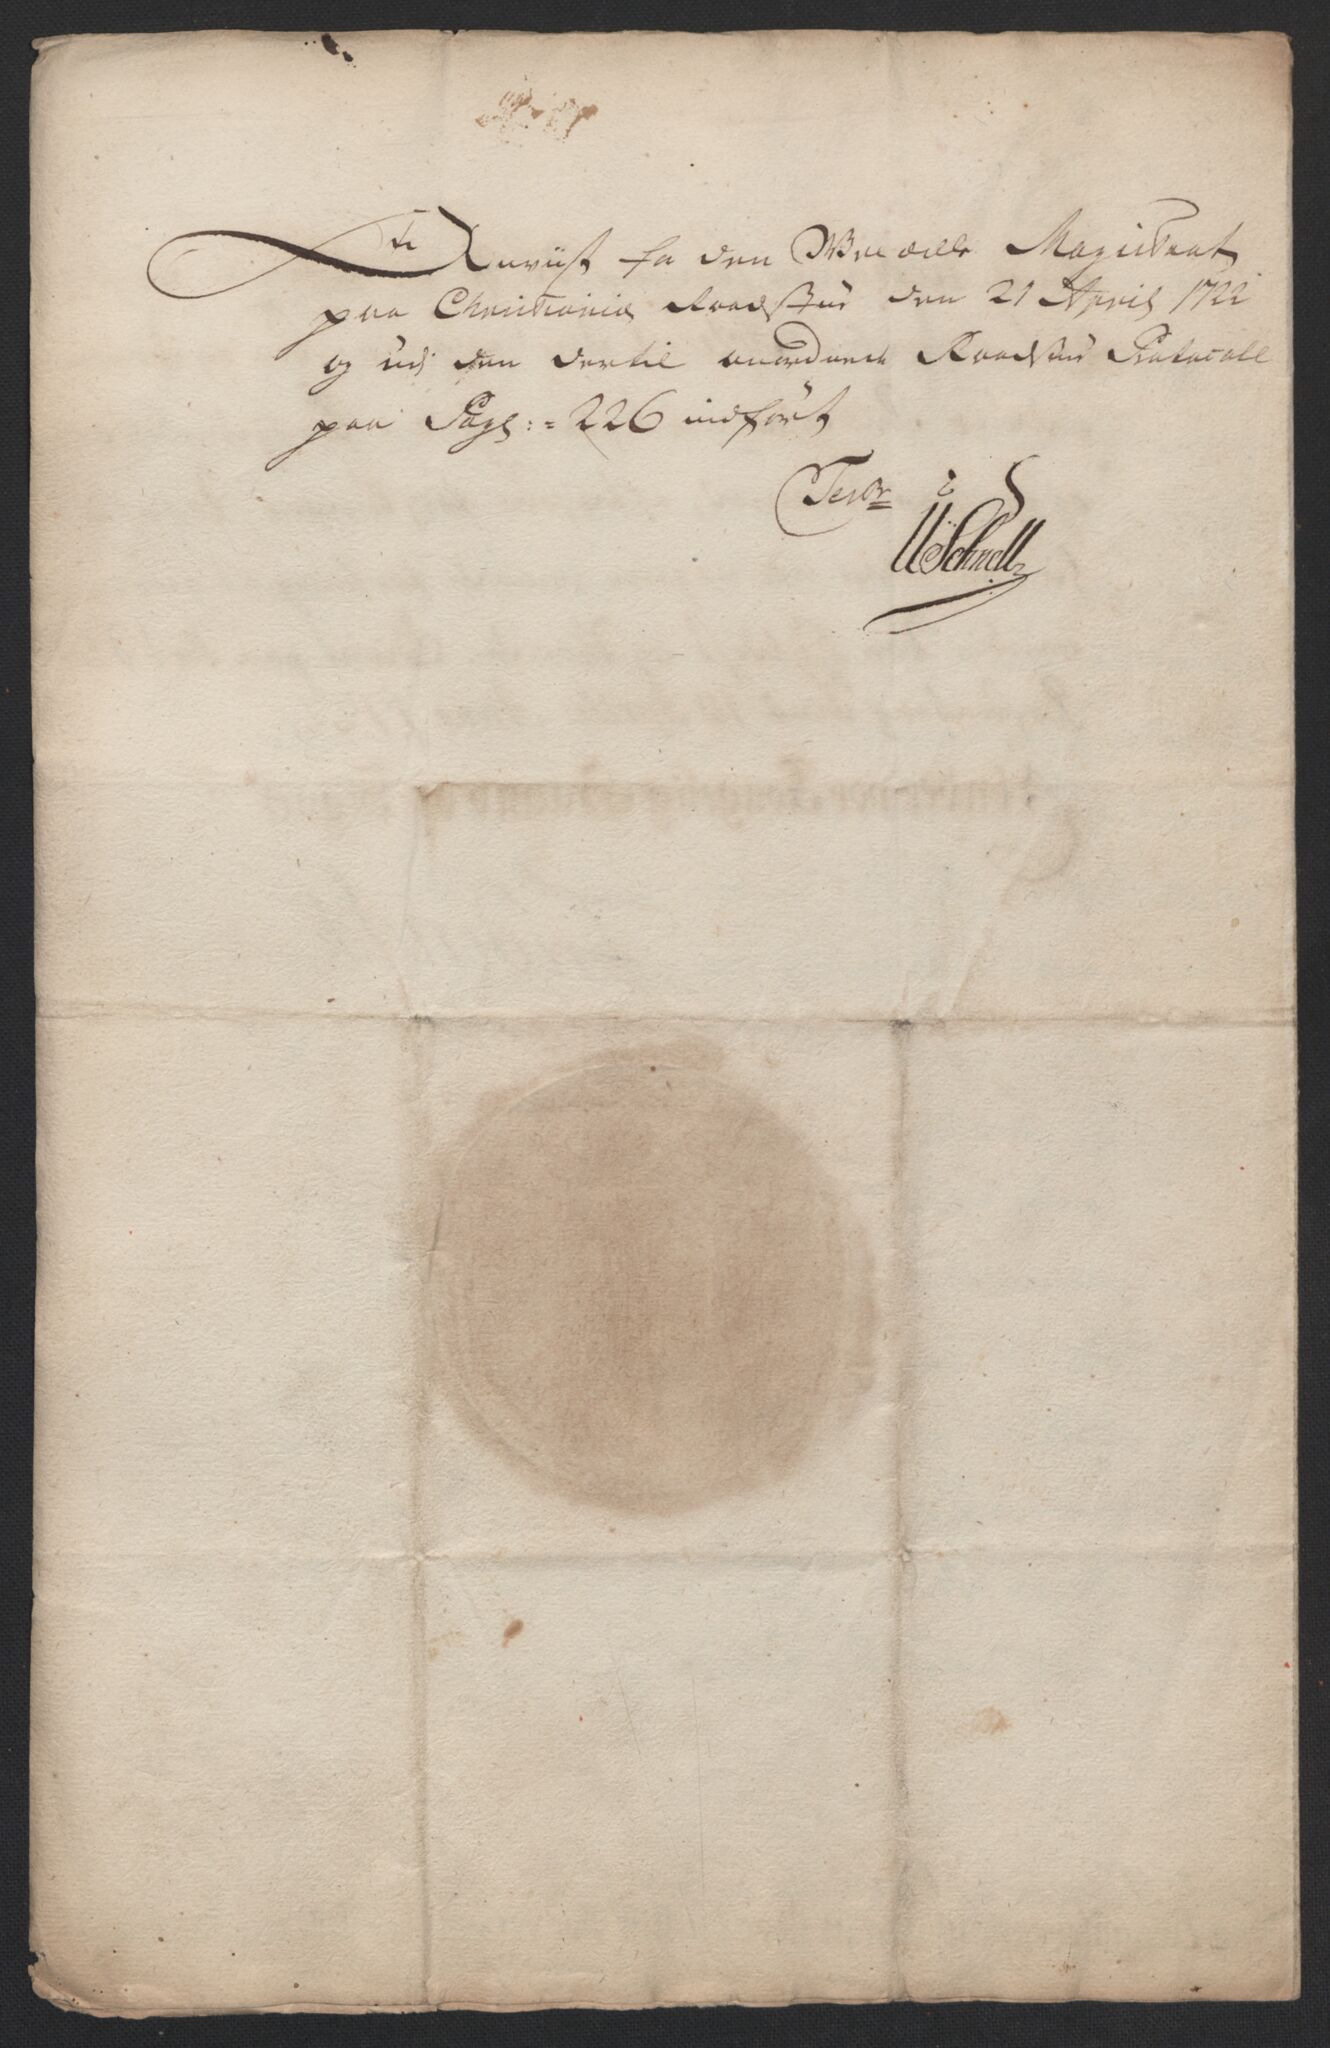 Anviist for den Vel ædle Magistrat
paa Christiania Raadstue den 21 April 1722
og udj den dertil anordnede Raadstue Protocoll
paa Pag: = 226 indført
Test
USchnell